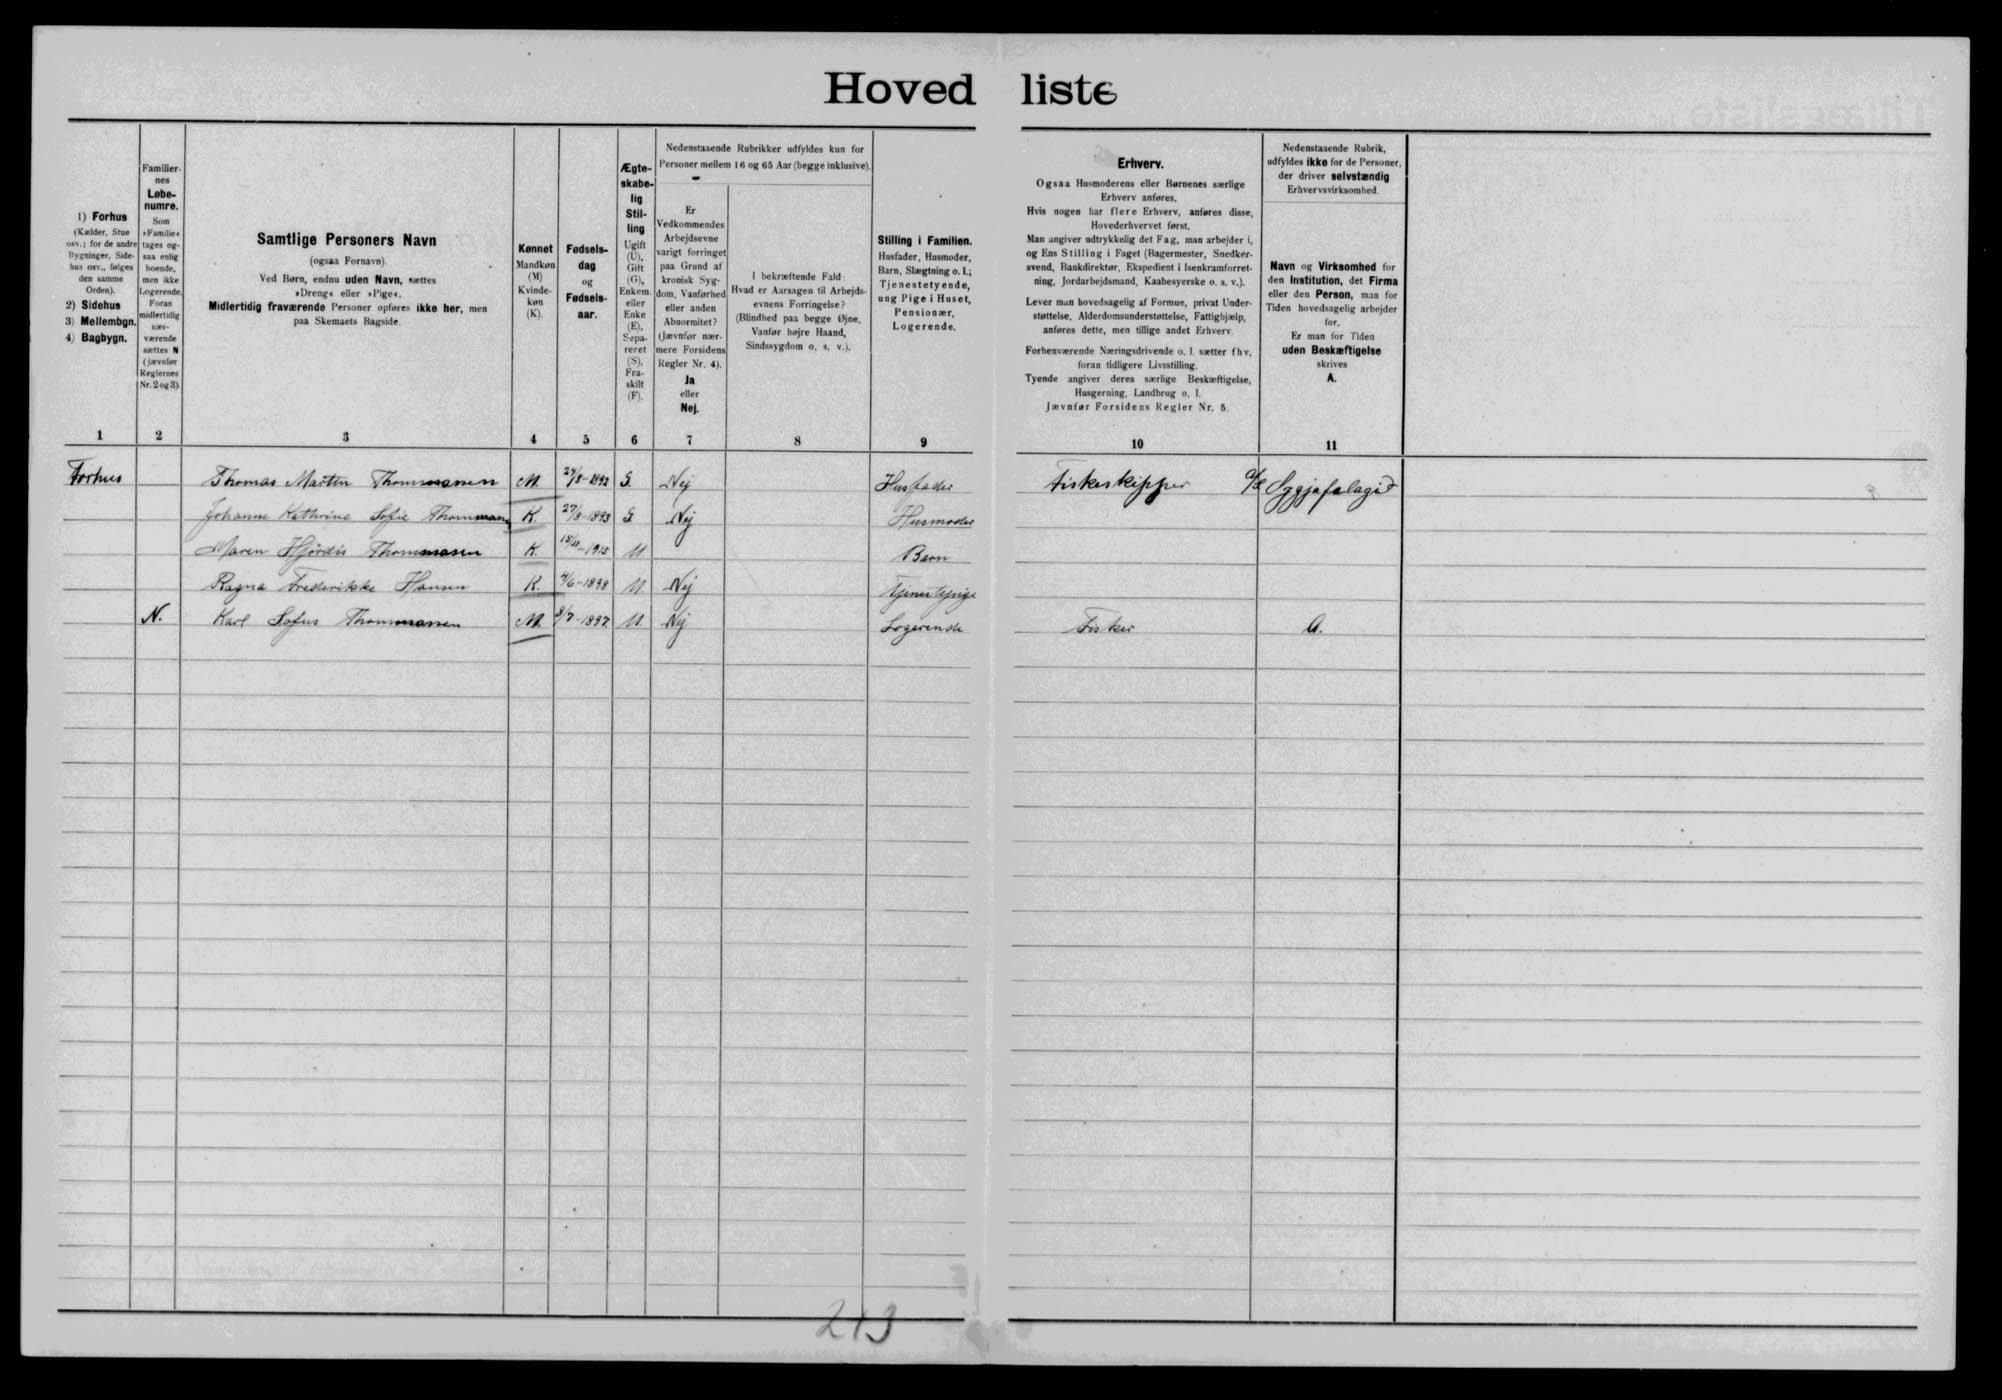 Hovedliste
1) Forhus
(Kælder, Stue
osv.; for de andre
Bygninger, Side-
hus osv., følges
den samme
Orden).
2) Sidehus
3) Mellembgn.
4) Bagbygn.
Familier-
nes
Løbe-
numre.
Som
»Familie«
tages og-
saa enlig
boende,
men ikke
Logerende.
Foran
midlertidig
nær-
værende
sættes N
(jævnfør
Reglernes
Nr. 2 og 3).
Samtlige Personers Navn
(ogsaa Fornavn).
Ved Børn, endnu uden Navn, sættes
»Dreng« eller »Pige«.
Midlertidig fraværende Personer opføres ikke her, men
paa Skemaets Bagside.
Kønnet
Mandkøn
(M)
Kvinde-
køn
(K).
Fødsels-
dag
og
Fødsels-
aar.
Ægte-
skabe-
lig
Stil-
ling
Ugift
(U),
Gift
(G),
Enkem.
eller
Enke
(E),
Sepa-
reret
(S),
Fra-
skilt
(F).
Nedenstaaende Rubrikker udfyldes kun for
Personer mellem 16 og 65 Aar (begge inklusive).
Er
Vedkommendes
Arbejdsevne
varigt forringet
paa Grund af
kronisk Syg-
dom, Vanførhed
eller anden
Abnormitet?
(Jævnfør nær-
mere Forsidens
Regler Nr. 4).
Ja
eller
Nej.
I bekræftende Fald:
Hvad er Aarsagen til Arbejds-
evnens Forringelse?
(Blindhed paa begge Øjne,
Vanfør højre Haand,
Sindssygdom o. s. v.).
Stilling i Familien.
Husfader, Husmoder,
Barn, Slægtning o. l.;
Tjenestetyende,
ung Pige i Huset,
Pensionær,
Logerende.
Erhverv.
Ogsaa Husmoderens eller Børnenes særlige
Erhverv anføres.
Hvis nogen har flere Erhverv, anføres disse,
Hovederhvervet først.
Man angiver udtrykkelig det Fag, man arbejder i,
og Ens Stilling i Faget (Bagermester, Snedker-
svend, Bankdirektør, Ekspedient i Isenkramforret-
ning, Jordarbejdsmand, Kaabesyerske o. s. v.).
Lever man hovedsagelig af Formue, privat Under-
støttelse, Alderdomsunderstøttelse, Fattighjælp,
anføres dette, men tillige andet Erhverv.
Forhenværende Næringsdrivende o. l. sætter fhv.
foran tidligere Livsstilling.
Tyende angiver deres særlige Beskæftigelse,
Husgerning, Landbrug o. l.
Jævnfør Forsidens Regler Nr. 5.
Nedenstaaende Rubrik,
udfyldes ikke for de Personer,
der driver selvstændig
Erhvervsvirksomhed.
Navn og Virksomhed for
den Institution, det Firma
eller den Person, man for
Tiden hovedsagelig arbejder
for.
Er man for Tiden
uden Beskæftigelse
skrives
A.
1 2 3 4 5 6 7 8 9 10 11
Forhus Thomas Martin Thommassen M. 24/8-1892 G Nej Husfader Fiskeskipper A/S
Johanne Kathrine Sofie Thommassen K. 27/8-1893 G Nej Husmoder
Maren Hjördis Thommasen K. 1915 U Barn
Ragna Frederikke Hansen K. 4/6-1898 U Nej
N. Karl Sofus Thommassen M. 8/7-1897 U. Nej Logerende Fisker A.
213